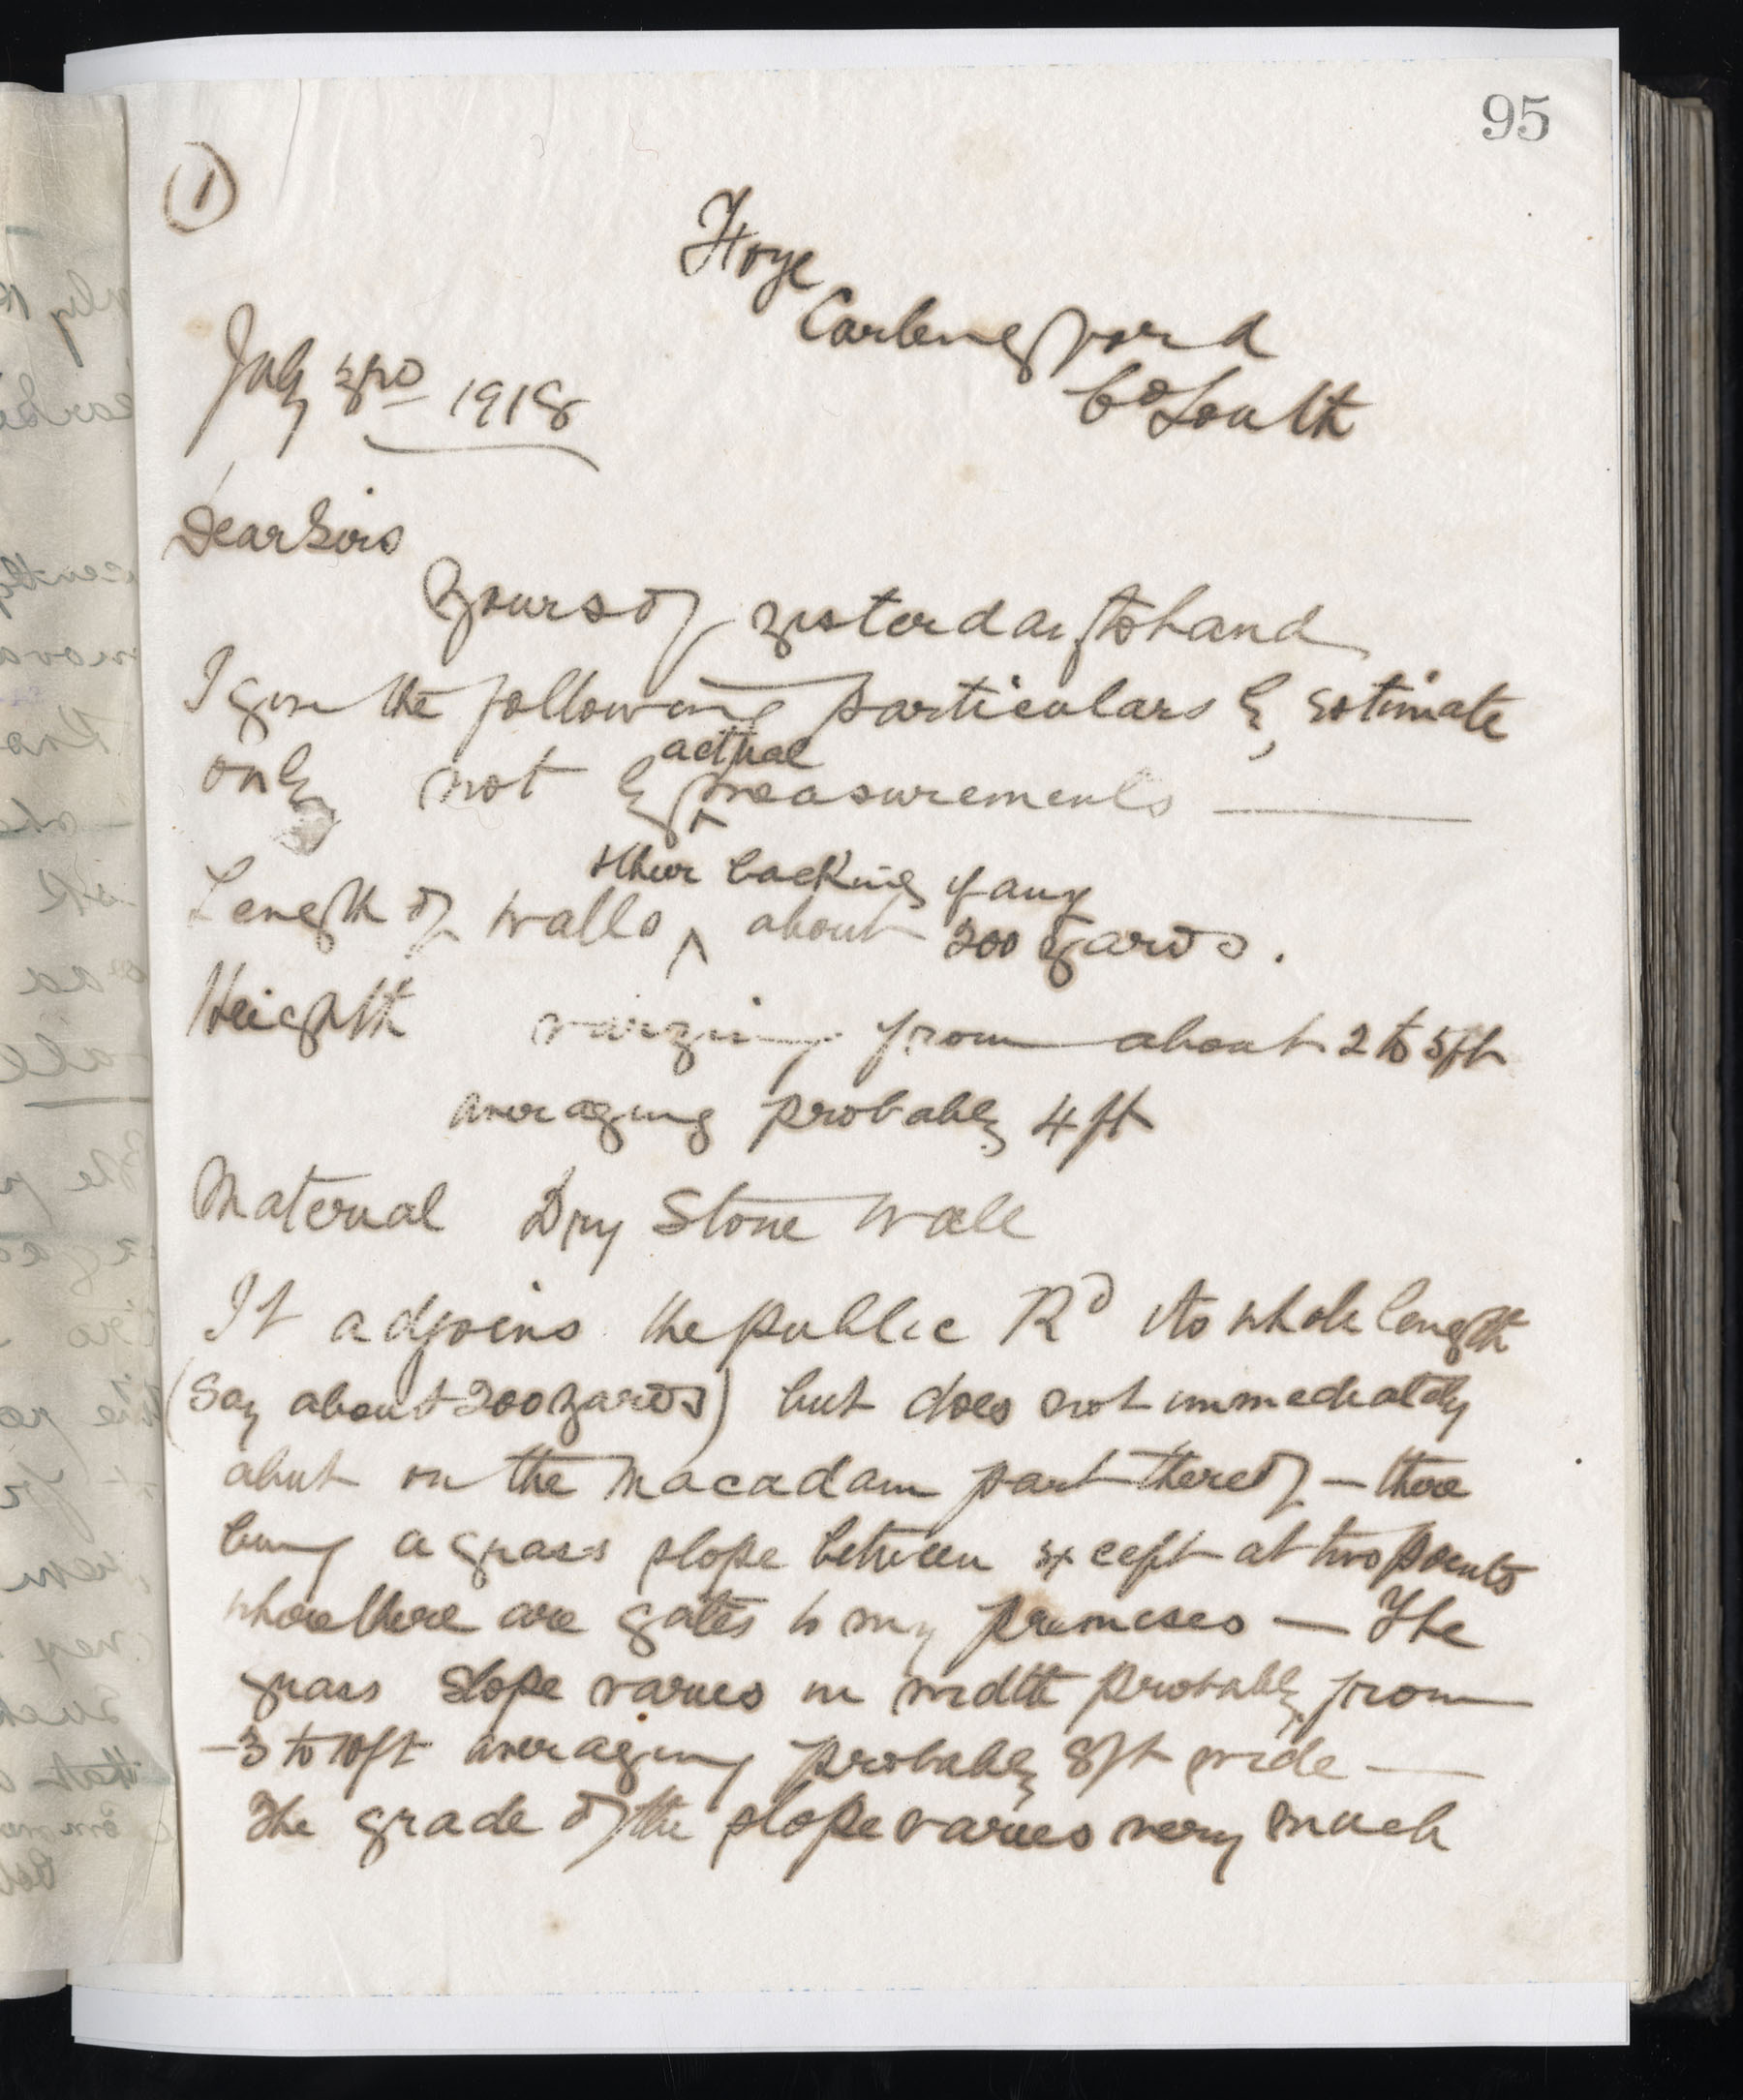 95
1
Carlingford
Co Louth
July 3rd 1918
Dear Sirs
Yours of yesterday to hand
I give the following particulars by estimate
only not by actual measurements —
Length of walls & their backing if any about 200 yards.
Height varying from about 2 to 5 ft
averaging probably 4 ft
Material Dry Stone Wall
It adjoins the public Rd its whole length
(Say about 200 yards) but does not immediately
abut on the Macadam part thereof — there
being a grass slope between except at two points
where there are gates to my premises — The
grass slope varies in width probably from
3 to 10 ft averaging probably 8 ft wide —
The grade of the slope varies very much